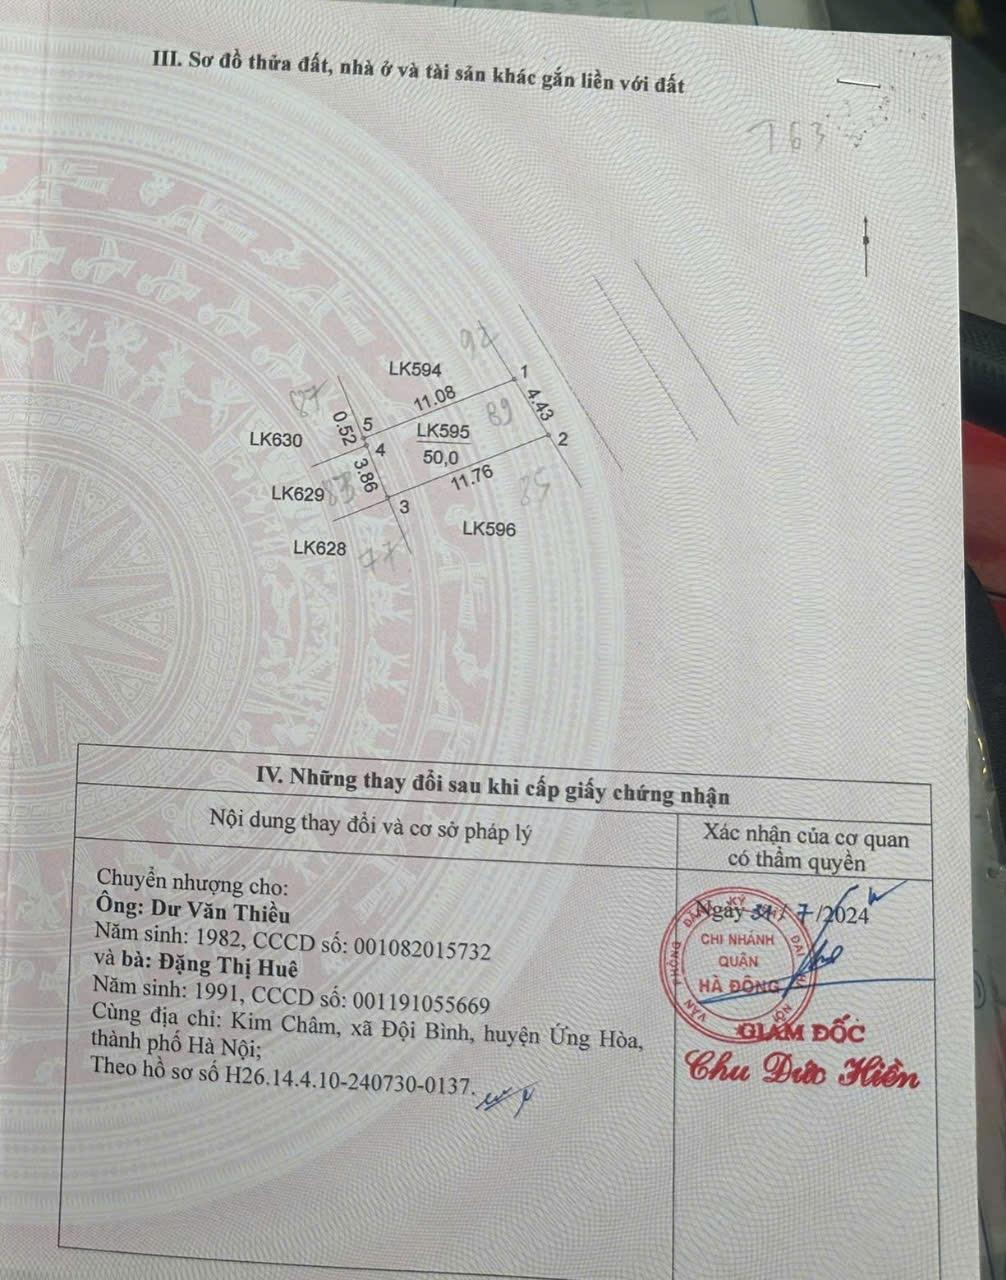 III. Sơ đồ thửa đất, nhà ở và tài sản khác gắn liền với đất
763
92
LK594
1
11.08
4.43
87
0.52
5
LK595
89
2
LK630
4
50,0
3.86
11.76
LK629
83
3
85
LK596
LK628
77
IV. Những thay đổi sau khi cấp giấy chứng nhận
Nội dung thay đổi và cơ sở pháp lý
Xác nhận của cơ quan
có thẩm quyền
Chuyển nhượng cho:
Ông: Dư Văn Thiều
Năm sinh: 1982, CCCD số: 001082015732
và bà: Đặng Thị Huê
Năm sinh: 1991, CCCD số: 001191055669
Cùng địa chỉ: Kim Châm, xã Đội Bình, huyện Ứng Hòa,
thành phố Hà Nội;
Theo hồ sơ số H26.14.4.10-240730-0137.
Ngày 31/7/2024
VĂN PHÒNG ĐĂNG KÝ ĐẤT ĐAI HÀ NỘI
CHI NHÁNH
QUẬN
HÀ ĐÔNG
GIÁM ĐỐC
Chu Đức Hiền